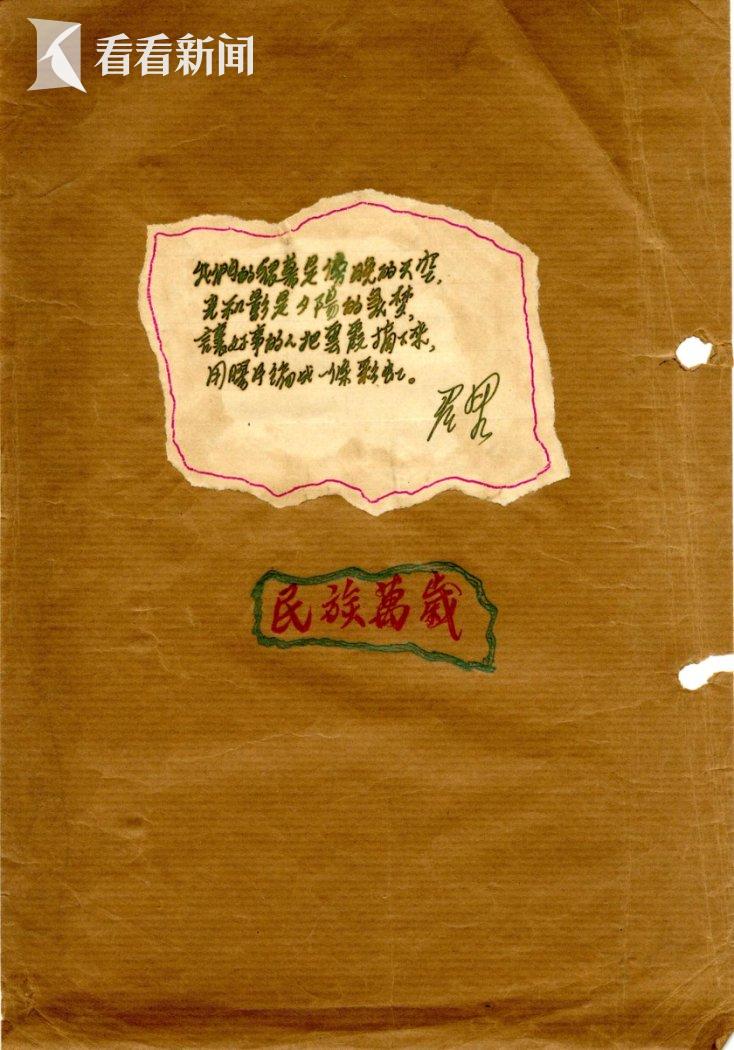 看看新闻
我們的銀幕是傍晚的天空,
光和影是夕陽的美梦,
讓好事的人把雲霞摘下來,
用膠片編成一條彩虹。
民族萬歲